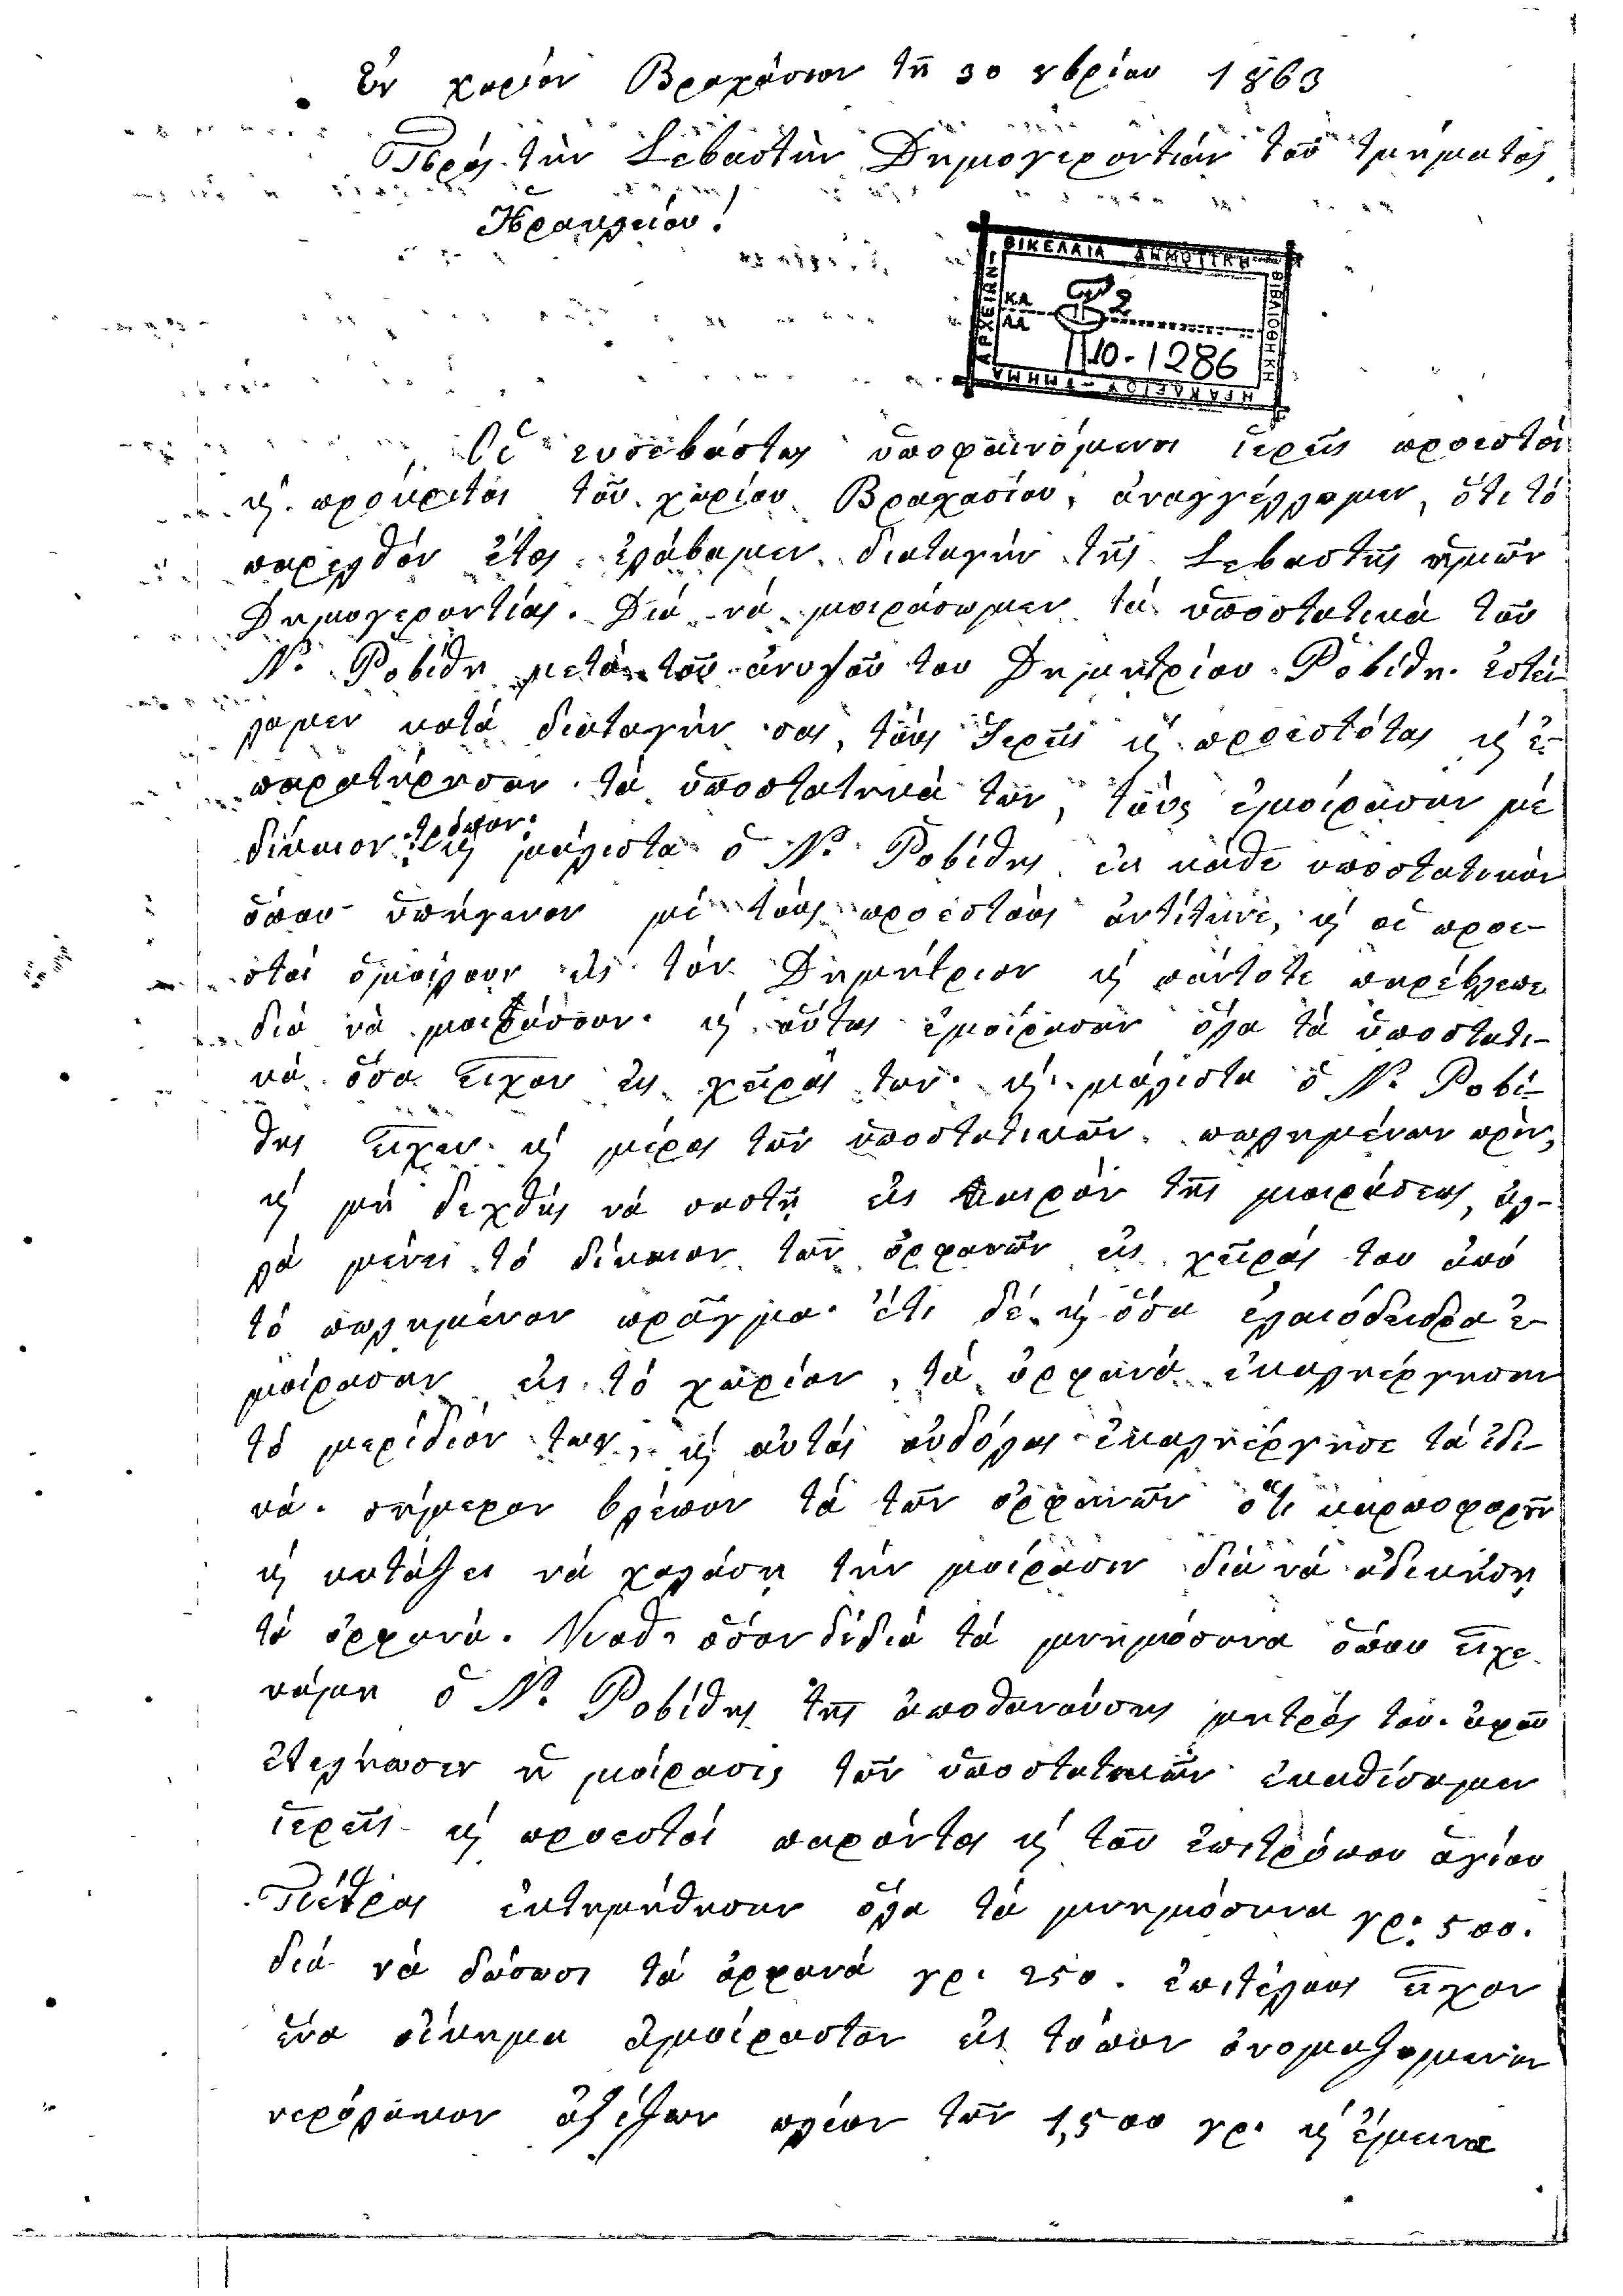 Ἐν χωρίον Βραχάσιον τῇ 30 8βρίου 1863
Πρός τὴν Σεβαστὴν Δημογεροντίαν τοῦ τμήματος
Ἡρακλείου.
ΒΙΚΕΛΑΙΑ ΔΗΜΟΤΙΚΗ
ΒΙΒΛΙΟΘΗΚΗ
ΗΡΑΚΛΕΙΟΥ - ΤΜΗΜΑ
ΑΡΧΕΙΩΝ
ΚΑ 2
ΑΑ
110-1286
Οἱ εὐσεβάστως ὑποφαινόμενοι ἱερεῖς προεστοί
κ προύκριτοι τοῦ χωρίου Βραχασίου, ἀναγγέλλομεν, ὅτι τό
παρελθόν ἔτος ἐλάβαμεν διαταγήν τῆς Σεβαστῆς ἡμῶν
Δημογεροντίας. Διά νά μοιράσωμεν τά ὑποστατικά τοῦ
Ν. Ροβίθη μετά τοῦ ἀνηψοῦ του Δημητρίου Ροβίθη. ἐστεί-
λαμεν κατά διαταγήν σας, τούς Ἱερεῖς κ προεστότας κ ἐ-
παρατήρησαν τά ὑποστατικά των, τούς ἐμοίρασαν μέ
δίκαιον τρόπον. κ μάλιστα ὁ Ν. Ροβίθης εἰς κάθε υποστατικόν
ὅπου ὑπήγαινον μέ τούς προεστούς ἀντίτεινε, κ οἱ προε-
στοί ὁμοίλουν εἰς τόν Δημήτριον κ πάντοτε παρέβλεπε
διά νά μοιράσουν. κ οὕτως ἐμοίρασαν ὅλα τά ὑποστατι-
κά ὅσα εἶχον εἰς χεῖράς των. κ μάλιστα ὁ Ν. Ροβί-
θης εἶχεν κ μέρος τῶν ὑποστατικῶν πωλημένον πρίν,
κ μή δεχθείς νά σαστῇ εἰς καιρόν τῆς μοιράσεως, ἀλ-
λά μένει τό δίκαιον τῶν ὀρφανῶν εἰς χεῖράς του ἀπό
τό πωλημένον πρᾶγμα. ἔτι δέ κ ὅσα ἐλαιόδενδρα ἐ-
μοίρασαν εἰς τό χωρίον, τά ὀρφανά ἐκαλλιέργησαν
τό μερίδιόν των, κ αὐτός οὐδόλως ἐκαλλιέργησε τά ἐδι-
κά. σήμερον βλέπων τά τῶν ὀρφανῶν ὅτι καρποφοροῦν
κ κυτάζει νά χαλάσῃ τήν μοίρασιν διά νά ἀδικήσῃ
τά ὀρφανά. Καθ᾽ ὅσον δέ διά τά μνημόσυνα ὅπου εἶχε
κάμη ὁ Ν. Ροβίθης τῆς ἀποθανούσης μητρός του. ἀφοῦ
ἐτελείωσεν ἡ μοίρασις τῶν ὑποστατικῶν ἐκαθίσαμεν
ἱερεῖς κ προεστοί παρόντος κ τοῦ ἐπιτρόπου ἁγίου
Πέτρας ἐκτημήθησαν ὅλα τά μνημόσυνα γρ. 500.
διά νά δώσωσι τά ὀρφανά γρ. 250. ἐπιτέλους εἶχον
ἕνα οἴκημα ἀμοίραστον εἰς τόπον ὀνομαζόμενον
νερόλακον ἀξίζων πλέον τῶν 1,500 γρ. κ ἔμεινα